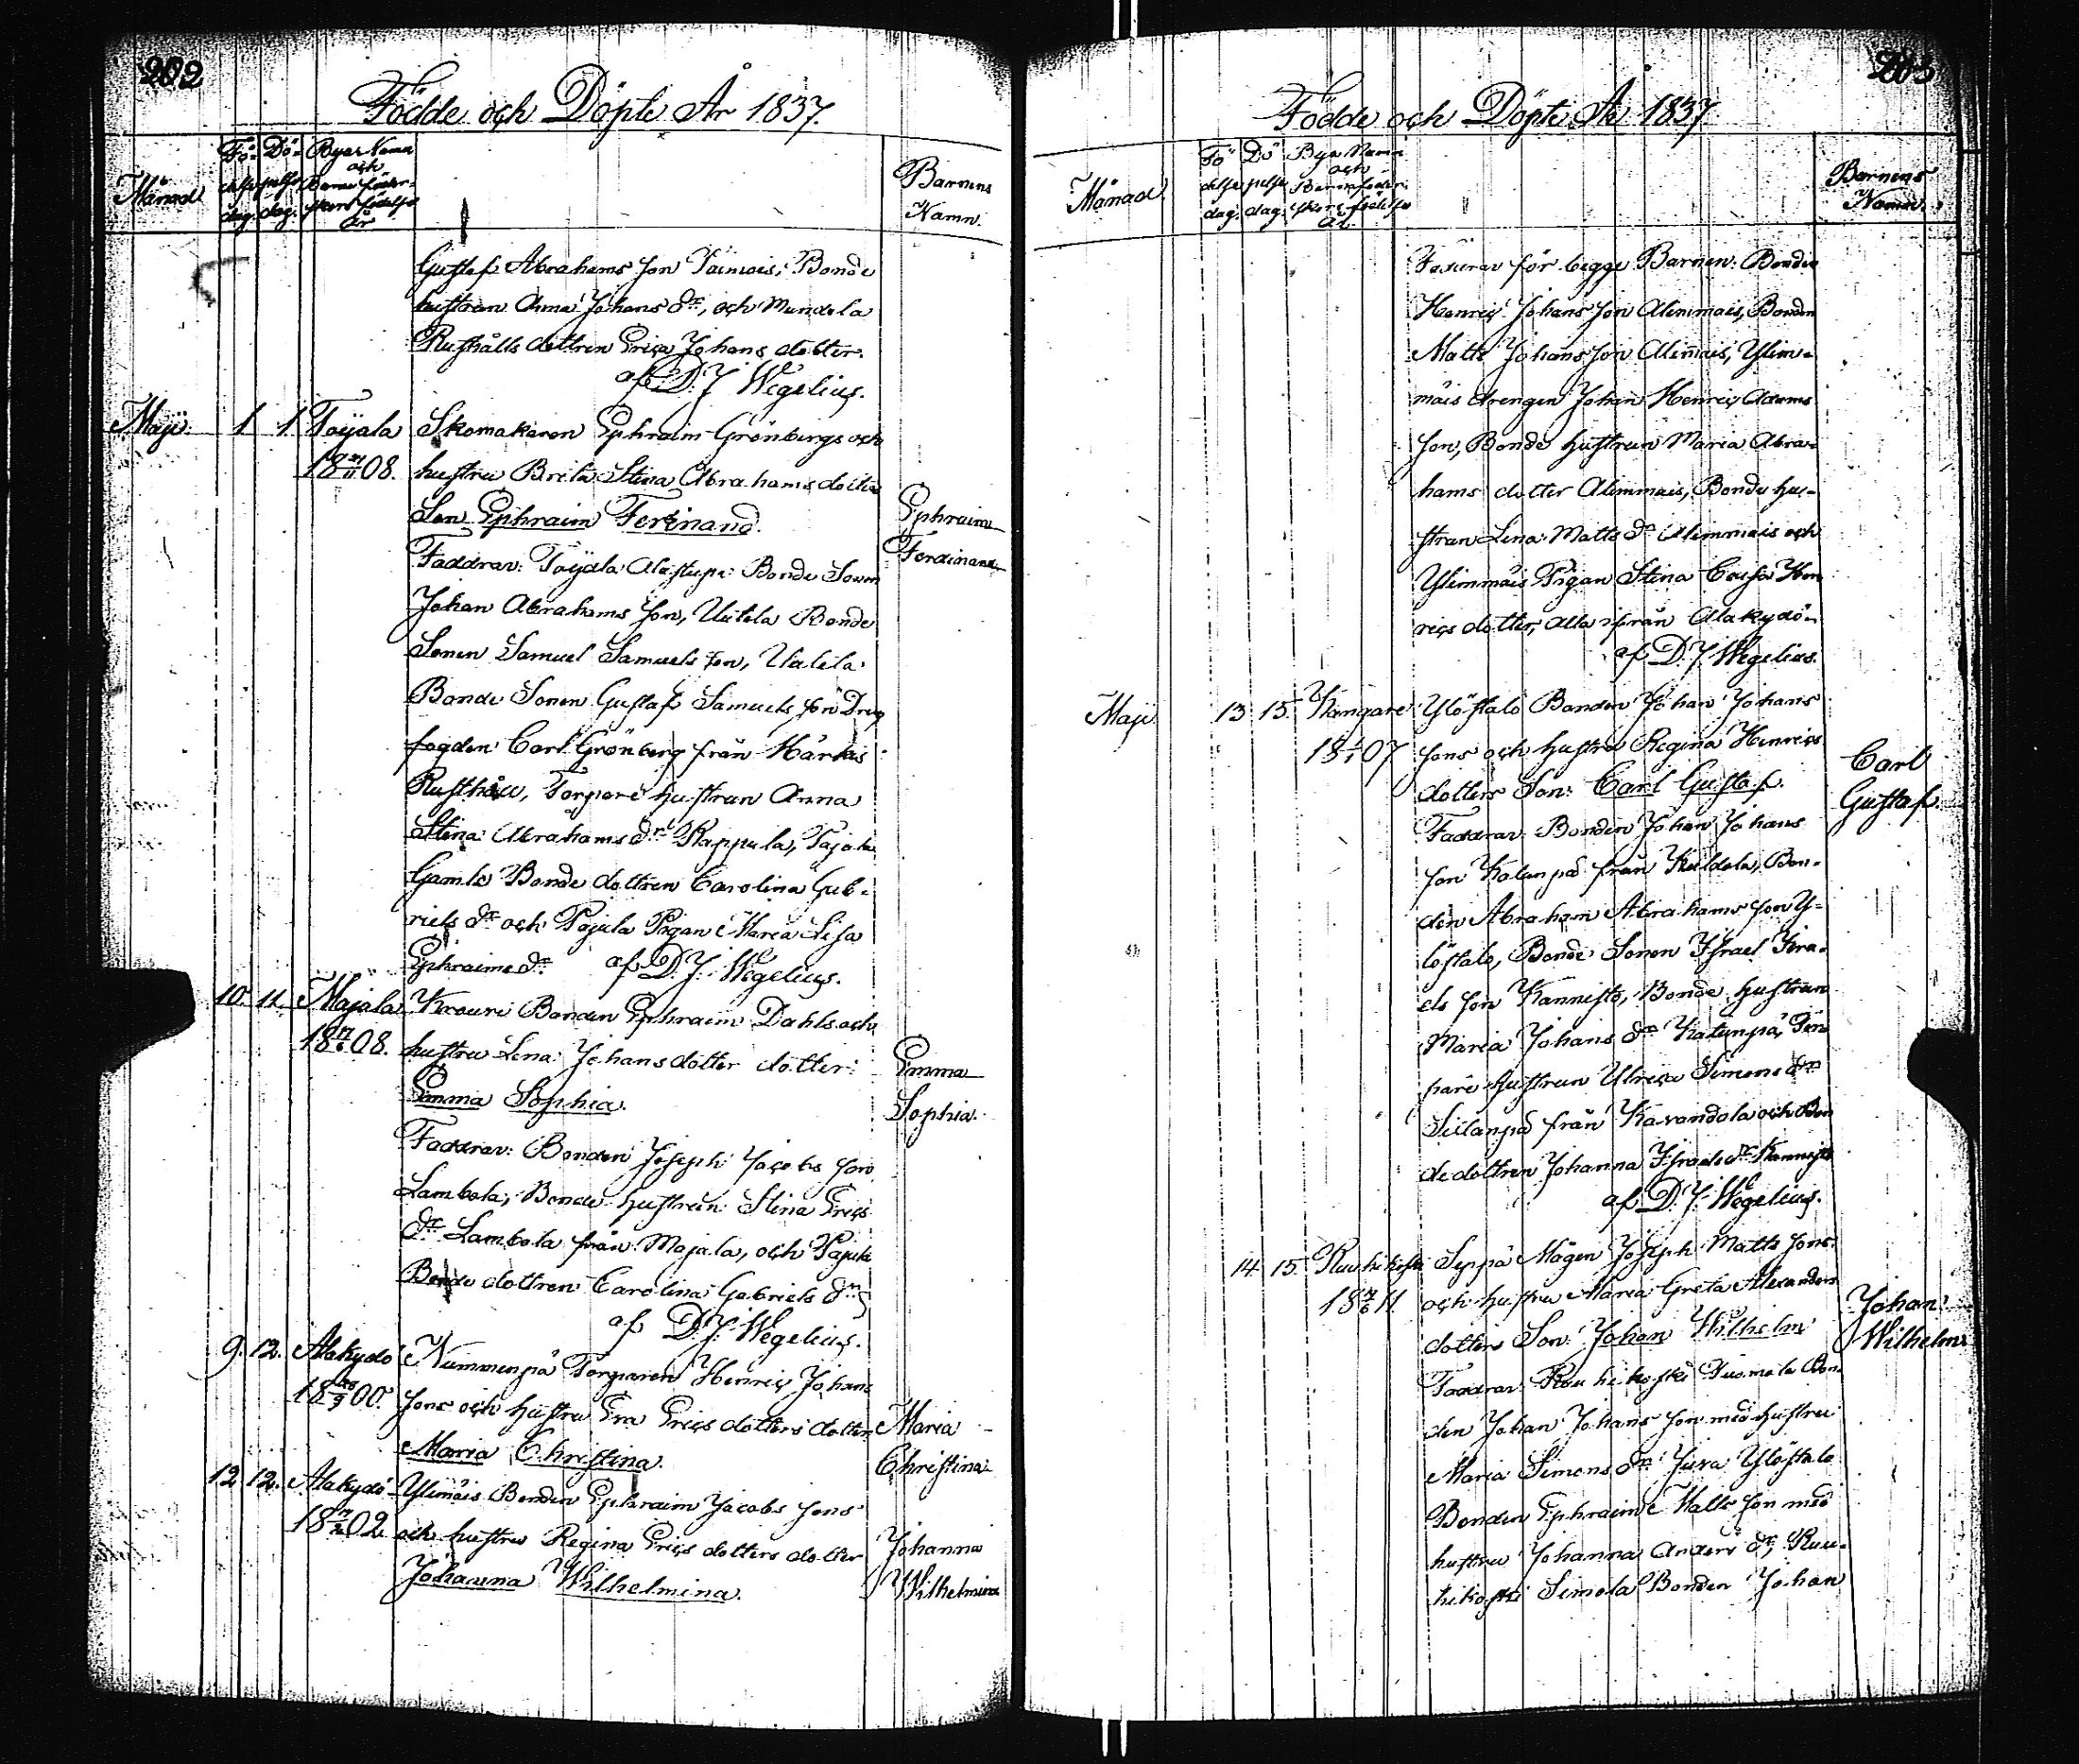 202
Födde och Döpte År 1837.
Månad
Fö-
delse
dag.
Dö-
pelse
dag.
Byar Namn
och
Barnaföder-
skans födelse
År
Barnens
Namn.
Gustaf Abrahams son Päimois, Bonde
hustrun Anna Johans dr, och Mundola
Rusthålls dottren Erica Johans dotter.
af D. J. Wegelius.
Maji. 1 1 Tojala Skomakaren Ephraim Grönbergs och
18 08. hustru Brita Stina Abrahams dotter
Son Ephraim Ferdinand.
Ephraim
Ferdinand
Faddrar: Tojala Alastupa Bonde Sonen
Johan Abrahams son, Uutela Bonde
Sonen Samuel Samuels son, Uutela
Bonde Sonen Gustaf Samuels son Dreg
fogden Carl Grönberg från Härkäs
Rusthåll, Torpare hustrun Anna
Stina Abrahams dr Rappula, Pajula
Gamla Bonde dottren Carolina Gab-
riels dr och Pajula Pigan Maria Lisa
Ephraims dr af D. J. Wegelius.
10. 11. Majala Krouri Bonden Ephraim Dahls och
18 08. hustru Lena Johansdotter dotter:
Emma Sophia.
Emma
Sophia.
Faddrar: Bonden Joseph Jacobs son
Lambola, Bonde hustrun Stina Erics
dr Lambola från Majala, och Pajula
Bonde dottren Carolina Gabriels dr
af D. J. Wegelius.
9. 12. Alakydö Nummenpä Torparen Henric Johans
18 00. sons och hustru Eva Erics dotters dotter
Maria Christina.
Maria
Christina.
12 12. Alakydö Ylimäis Bonden Ephraim Jacobs sons
18 02 och hustru Regina Erics dotters dotter
Johanna Wilhelmina.
Johanna
Wilhelmina
203
Födde och Döpte År 1837
Månad
Fö
delse
dag.
Dö
pelse
dag.
Bya Namn
och
Barnaföder-
skans födelse
År.
Barnens
Namn.
Faddrar för begge Barnen: Bonden
Henric Johans son Alimmais, Bonden
Matts Johans son Alimais, Ylim-
mäis drengen Johan Henric Adams
son, Bonde hustrun Maria Abra-
hams dotter Alimmais, Bonde hu-
strun Lena Matts dr Alimmais och
Ylimmäis Pigan Stina Caisa Hen
rics dotter, alla ifrån Alakydö.
af D. J. Wegelius.
Maji 13 15. Kangare Ylöstalo Bonden Johan Johans
18 07 sons och hustru Regina Henrics
dotters Son: Carl Gustaf.
Carl
Gustaf.
Faddrar: Bonden Johan Johans
son Katunpä från Kuldola, Bon-
den Abraham Abrahams son Y-
löstalo, Bonde Sonen Israel Isra-
els son Kannisto, Bonde hustrun
Maria Johans dr Katunpä, Tor
pare hustrun Ulrica Simons dr
Sillanpä från Karvandola och Bon
de dottren Johanna Israels dr Kannisto
af D. J. Wegelius.
14. 15. Ruuhikoski Seppä Mågen Joseph Matts sons
18 11. och hustru Maria Greta Alexanders
dotters Son: Johan Wilhelm
Johan
Wilhelm
Faddrar: Ruuhikoski Tuomola Bon-
den Johan Johans son med hustru
Maria Simons dr Juva Ylöstalo
Bonden Ephraim Matts son med
hustru Johanna Anders dr, Ruu-
hikoski Simola Bonden Johan